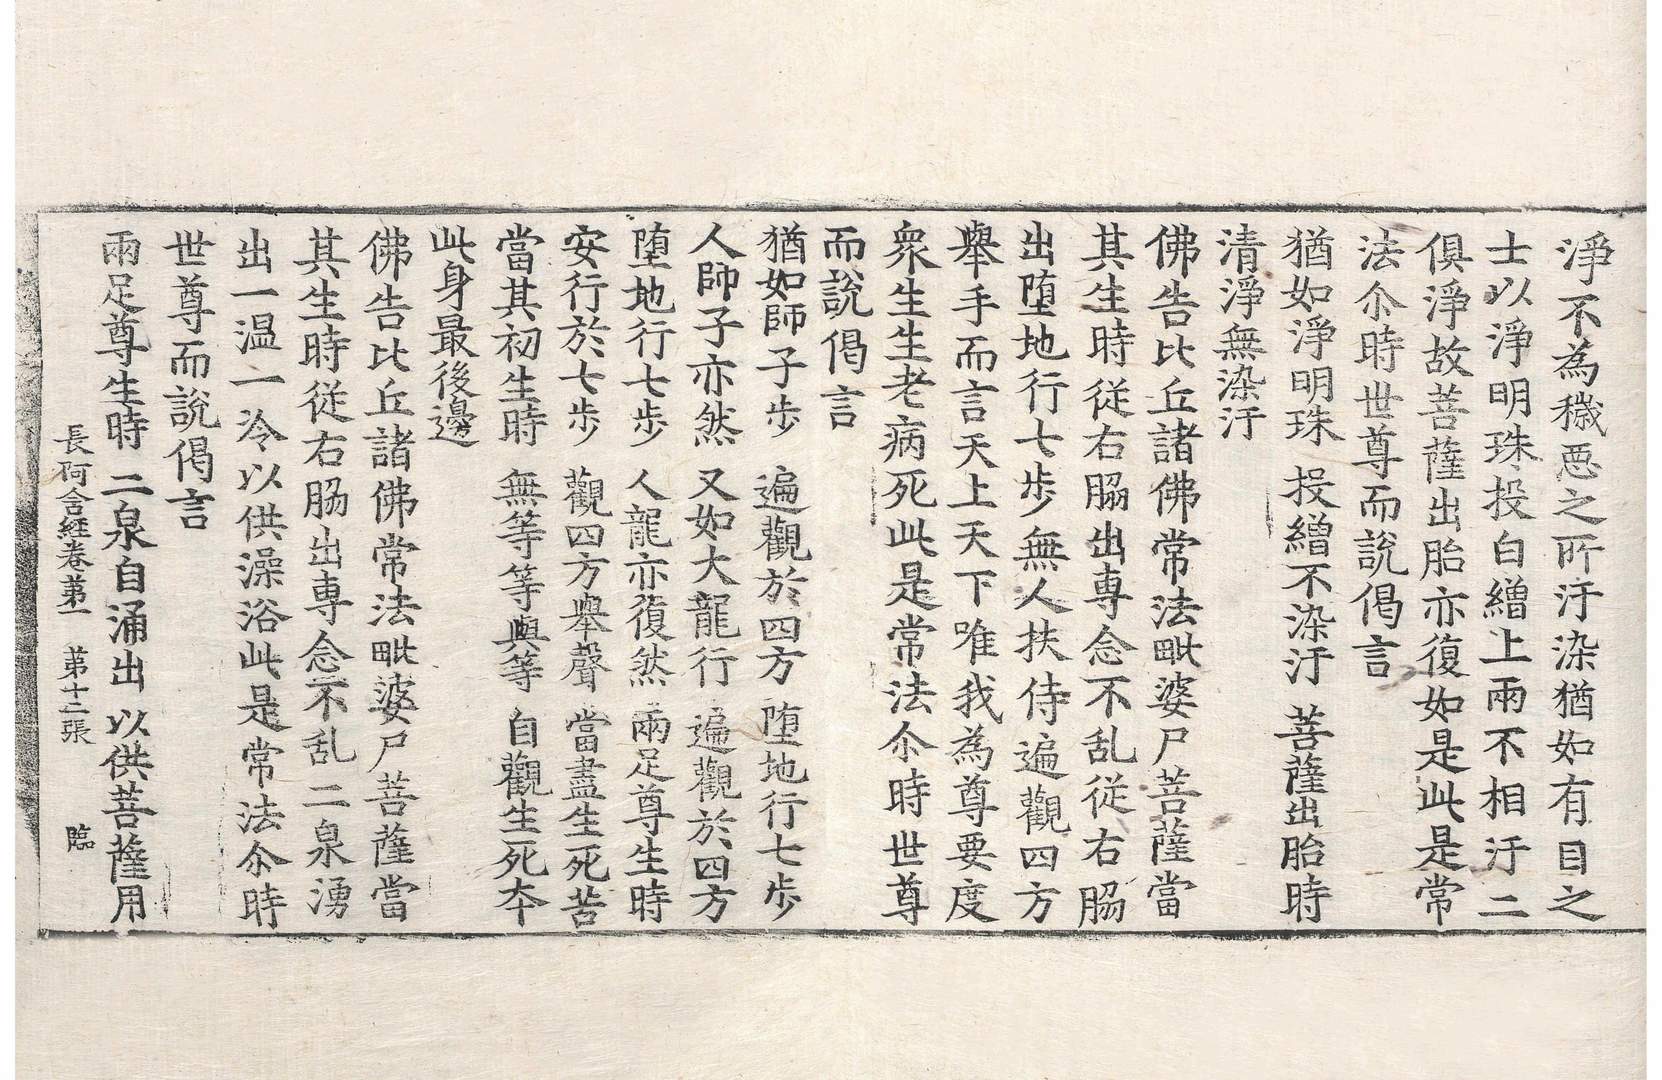 淨不為穢惡之所汙染猶如有目之
士以淨明珠投白繒上兩不相汙二
俱淨故菩薩出胎亦復如是此是常
法尒時世尊而說偈言
猶如淨明珠 投繒不染汙 菩薩出胎時
清淨無染汙
佛告比丘諸佛常法毗婆尸菩薩當
其生時從右脇出專念不乱從右脇
出墮地行七步無人扶侍遍觀四方
舉手而言天上天下唯我為尊要度
衆生生老病死此是常法尒時世尊
而說偈言
猶如師子步 遍觀於四方 墮地行七步
人師子亦然 又如大龍行 遍觀於四方
墮地行七步 人龍亦復然 兩足尊生時
安行於七步 觀四方舉聲 當盡生死苦
當其初生時 無等等與等 自觀生死本
此身最後邊
佛告比丘諸佛常法毗婆尸菩薩當
其生時從右脇出專念不乱二泉湧
出一温一冷以供澡浴此是常法尒時
世尊而說偈言
兩足尊生時 二泉自涌出 以供菩薩用
長阿含經卷第一 第十二張 臨